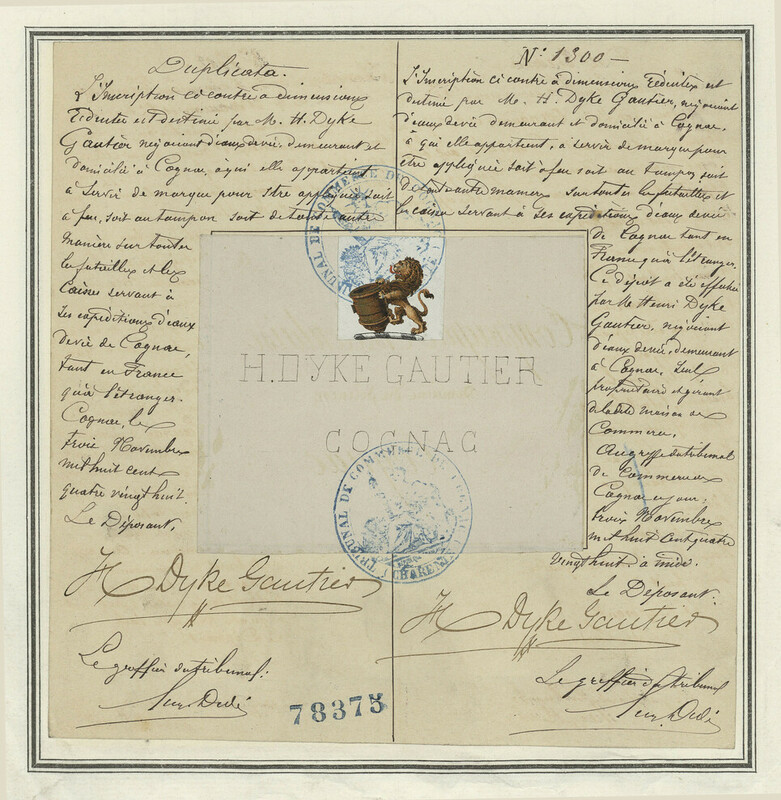 Duplicata.
L'Inscription ci contre à dimensions
Réduites est destiné par M. H. Dyke
Gautier négociant d'eaux de vie, demeurant et
domicilié à Cognac, à qui elle appartient
à servir de marque pour être appliquée soit
à feu, soit au tampon soit de toute autre
manière sur toutes
les futailles et les
caisses servant à
ses expéditions d'eaux
de vie de Cognac,
tant en France
qu'à l'étranger.
Cognac, le
trois Novembre
mil huit cent
quatre vingt huit.
Le Déposant,
H Dyke Gautier
Le greffier du tribunal.
N° 1300 —
L'Inscription ci contre à dimensions Réduites est
destiné par M. H. Dyke Gautier, négociant
d'eaux de vie demeurant et domicilié à Cognac,
à qui elle appartient, à servir de marque pour
être appliquée soit à feu soit au tampon soit
de toute autre manière sur toutes les futailles et
les caisses servant à ses expéditions d'eaux de vie
de Cognac tant en
France qu'à l'étranger.
Ce dépôt a été effectué
par M. Henri Dyke
Gautier, négociant
d'eaux de vie, demeurant
à Cognac, seul
propriétaire et gérant
de la dite maison de
Commerce,
Au greffe du tribunal
de Commerce de
Cognac ce jour,
trois Novembre
mil huit cent quatre
vingt huit à midi.
Le Déposant.
H Dyke Gautier
Le greffier du tribunal
H. DYKE GAUTIER
COGNAC
TRIBUNAL DE COMMERCE DE COGNAC
(CHARENTE)
78375